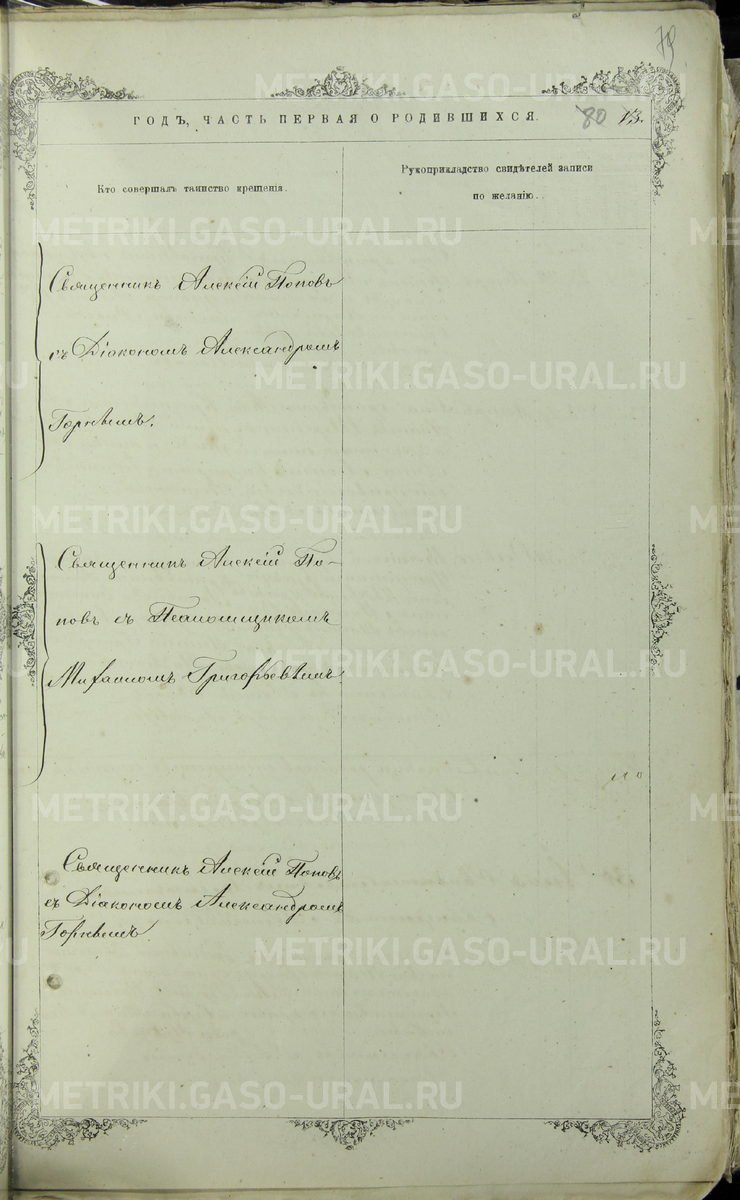 79
ГОДЪ, ЧАСТЬ ПЕРВАЯ О РОДИВШИХСЯ. 80 13.
Кто совершалъ таинство крещенія.
Рукоприкладство свидѣтелей записи
по желанію.
Священникъ Алексій Поповъ
съ Діакономъ Александромъ
Священникъ Алексій По-
повъ съ Псаломщикомъ
Михаиломъ Григорьевымъ.
Священникъ Алексій Поповъ
съ Діакономъ Александромъ
METRIKI.GASO-URAL.RU